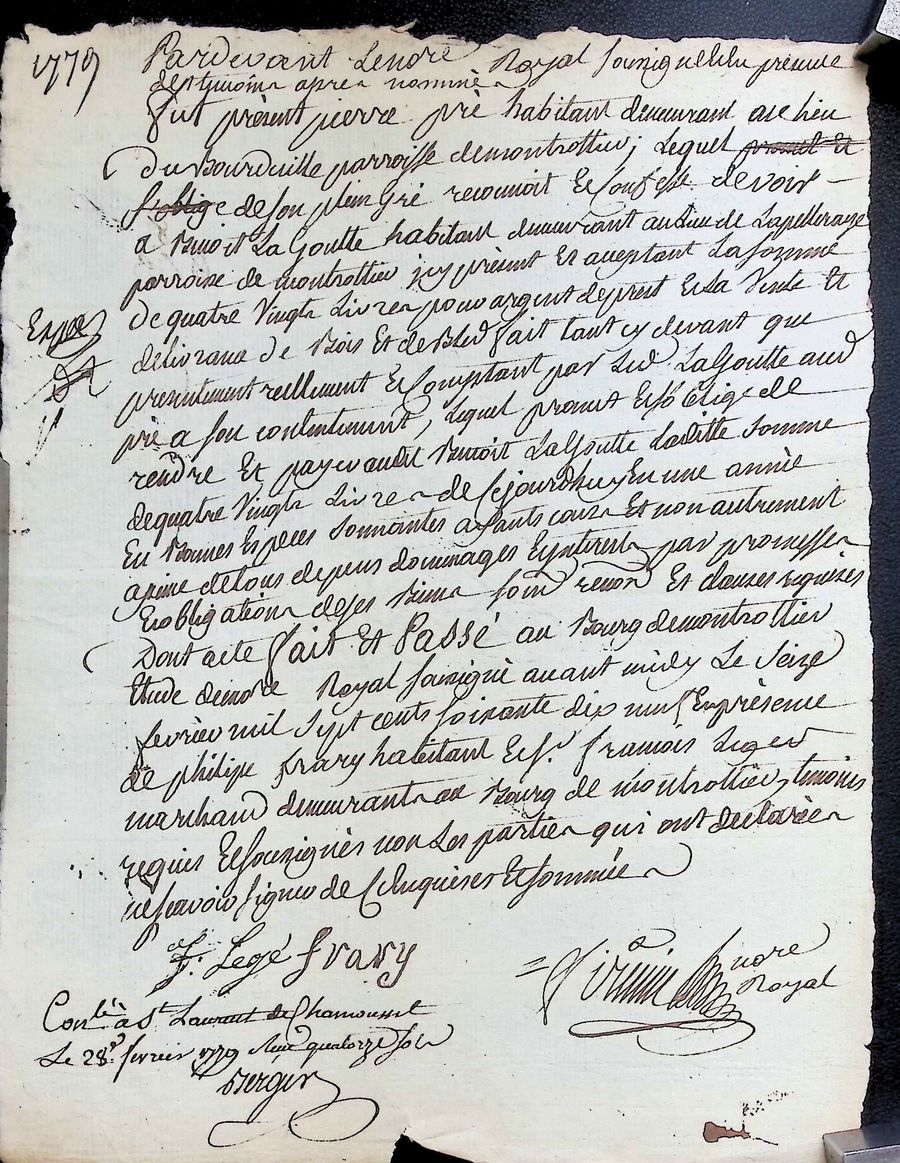 1779
Pardevant Le nore Royal soussigné Et En presence
des temoins apres nommés
fut présent pierre pré habitant demeurant au lieu
Du Bourdeille parroisse de montrottier, Lequel promet Et
s'oblige de son plein Gré reconnoit Et Confesse devoir
a Benoit La Goutte habitant demeurant au Lieu de Lapelleraye
parroisse de montrottier icy présent Et acceptant La somme
De quatre Vingts Livres pour argent de prest Et La Vente Et
Exped
délivrance de Bois Et de Bled fait tant cy devant que
presentement réellement Et Comptant par Led LaGoutte aud
pré a son contentement, Lequel promet Et s'oblige de
rendre Et payer audit Benoit LaGoutte Laditte somme
de quatre Vingts Livres de Cejourdhuy En une année
En Bonnes Especes sonnantes ayants cours Et non autrement
a peine de tous depens dommages Et interests par promesses
Et obligations de ses Biens soum renon Et clauses requises
Dont acte fait Et Passé au Bourg de montrottier
Etude de nore Royal soussigné avant midy Le Seize
fevrier mil sept cents soixante dix neuf En présence
de philipe frary habitant Et sr. francois Leger
marchand demeurants au Bourg de montrottier, temoins
requis Et soussignés non Les parties qui ont declarées
ne scavoir signer de Ce Enquises Et sommées
f: Legé frary
nore
Royal
Conlé a St Laurant de Chamousset
Le 28e. fevrier 1779 Reçu quatorze sols
Berger